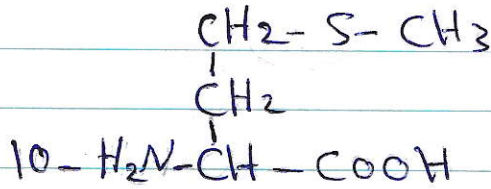 CH2- S- CH3
CH2
10- H2N-CH-COOH